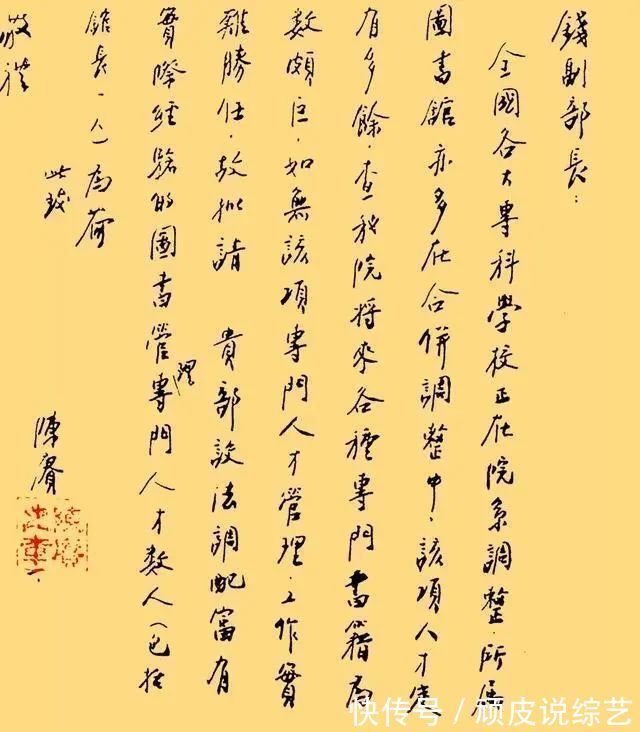 錢副部長：
全國各大專科學校正在院系調整，所属
圖書館亦多在合併調整中，該項人才定
有多餘，查我院將來各種專門書籍為
数頗巨，如無該項專門人才管理，工作實
難勝任，故拟請 貴部設法調配富有
實際經驗的圖書管理專門人才数人（包括
館長一人）為荷
此致
敬禮
陳賡
陳賡之章
快传号／顽皮说综艺